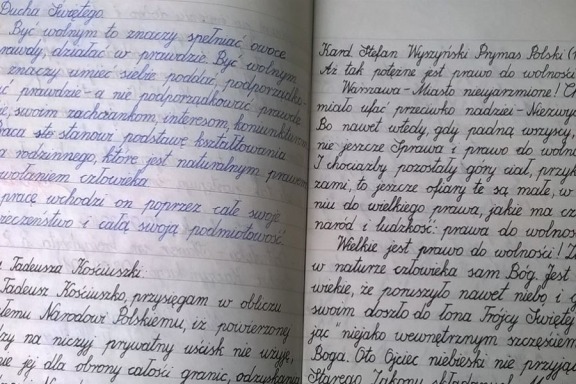 Ducha Świętego.
Być wolnym to znaczy spełniać owoce
prawdy, działać w prawdzie. Być wolnym
znaczy umieć siebie poddać, podporządko-
prawdzie - a nie podporządkować prawdę
swoim zachciankom, interesom, koniunkturom
stanowi podstawę kształtowania
rodzinnego, które jest naturalnym prawem
powołaniem człowieka
pracę wchodzi on poprzez całe swoje
i całą swoją podmiotowość.
Tadeusza Kościuszki:
Tadeusz Kościuszko, przysięgam w obliczu
całemu Narodowi Polskiemu, iż powierzonej
na niczyj prywatny uścisk nie użyję,
jej dla obrony całości granic, odzyskania
Kard. Stefan Wyszyński Prymas Polski
Aż tak potężne jest prawo do wolności
Warszawa - Miasto nieujarzmione!
miało ufać przeciwko nadziei -
Bo nawet wtedy, gdy padną wszyscy,
nie jeszcze Sprawa i prawo do
I chociażby pozostały góry ciał,
zami, to jeszcze ofiary te są małe, w
niu do wielkiego prawa, jakie ma
naród i ludzkość: prawa do wolności
Wielkie jest prawo do wolności!
w naturze człowieka sam Bóg. Jest
wiekie, że poruszyło nawet niebo i
swoim doszło do łona Trójcy Świętej
jąc "niejako wewnętrznym szczęściem
Boga. Oto Ojciec niebieski nie
Starego Zakonu